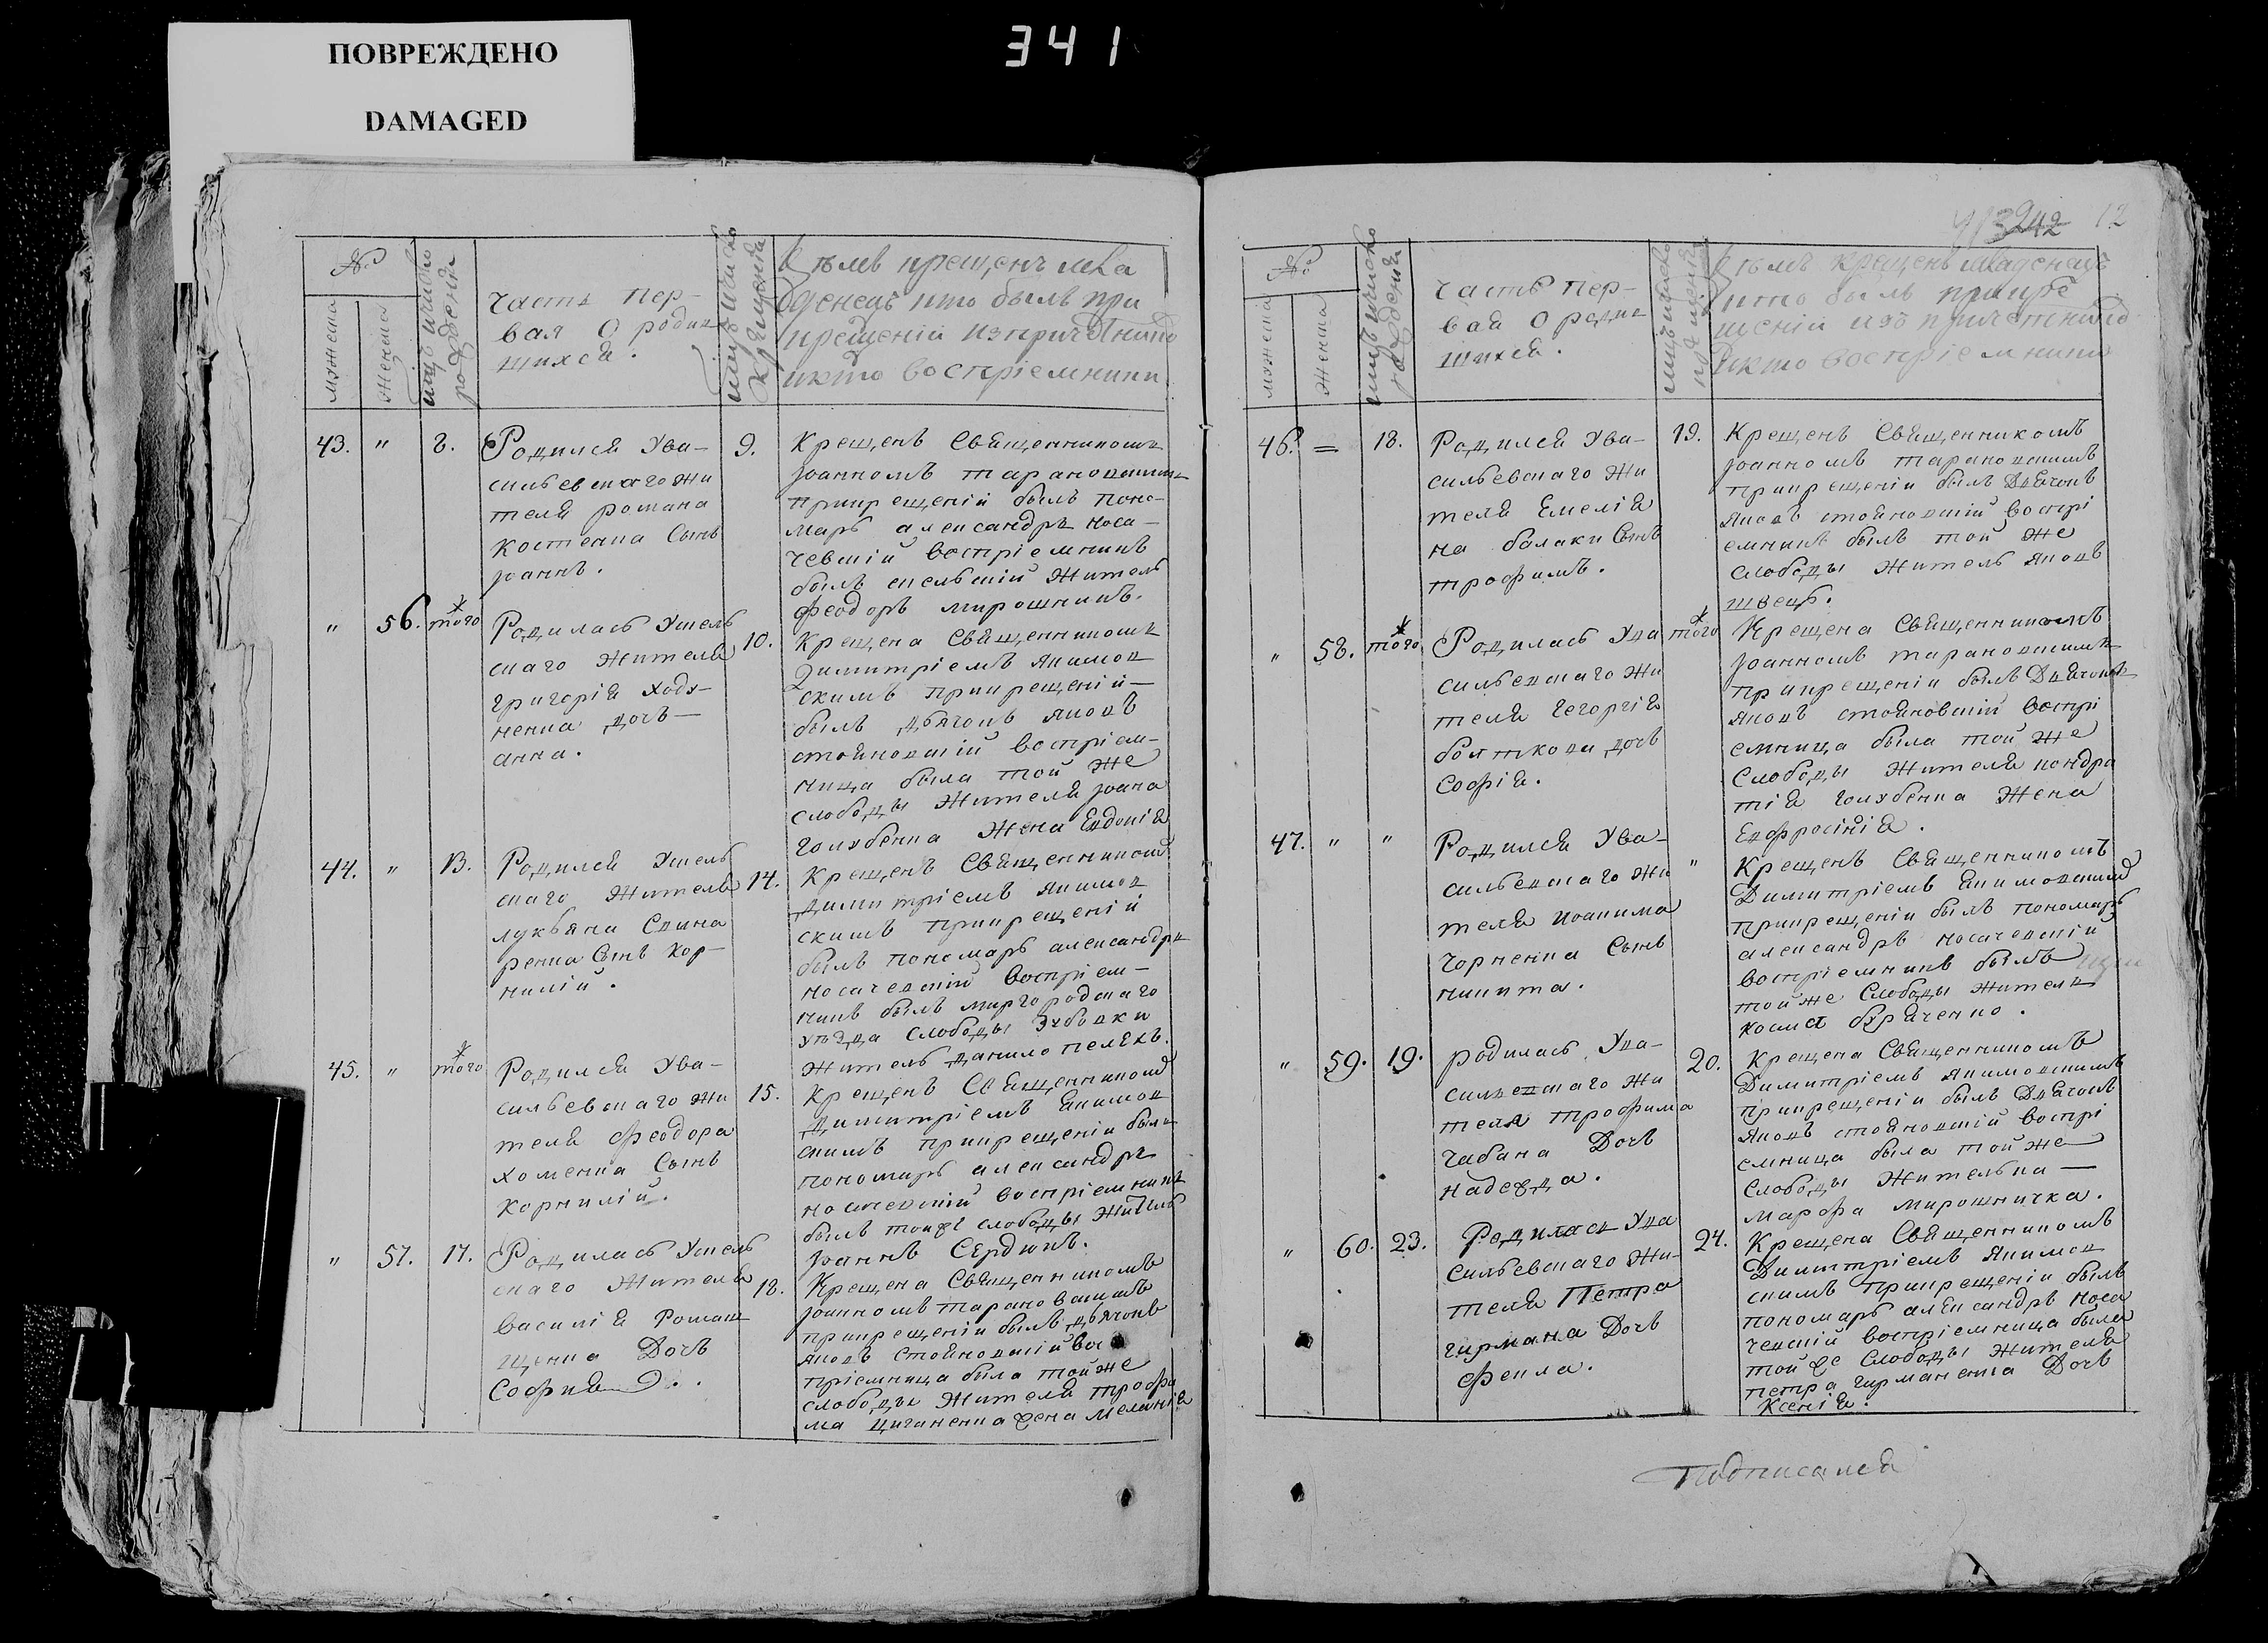 ПОВРЕЖДЕНО
DAMAGED
341
№
мужеска
женска
мѣсяцъ и число
рожденія
часть пер-
вая о родив
шихся.
мѣсяцъ и число
крещенія
кѣмъ крещенъ мла
денецъ кто былъ при
крещеніи изъ причетников
и кто воспріемники
43. " 8.
Родился Ува-
сильевскаго жи
теля романа
костенка сынъ
Іоаннъ.
9.
Крещенъ Священникомъ
Іоанномъ тарановскимъ
при крещеніи былъ поно-
марь александръ носа-
чевскій воспріемникъ
былъ сельскій житель
феодоръ мирошникъ.
" 56. того
Родилась
скаго жителя
григорія ходу-
ненка дочь
анна.
10.
Крещена Священникомъ
Димитріемъ якимов
скимъ при крещеніи
былъ дьячокъ яковъ
стойковскій воспріем-
ница была той же
слободы жителя Іоана
голубенка жена Евдокія
44. " 13.
Родился
скаго жителя
лукьяна Свина
ренка сынъ кор-
нилій.
14.
Крещенъ Священником
Димитріемъ якимов
скимъ при крещеніи
былъ пономарь александръ
носачевскій воспріем-
никъ былъ миргородскаго
уѣзда слободы зубовки
житель данило пелехъ.
45. " того
Родился Ува-
сильевскаго жи
теля феодора
хоменка сынъ
корнилій.
15.
Крещенъ Священником
Димитріемъ якимов
скимъ при крещеніи былъ
пономарь александръ
носачевскій воспріемникъ
былъ той же слободы житель
Іоаннъ Сердюкъ.
" 57. 17.
Родилась
скаго жителя
василія Ромащ
щенка Дочь
София.
18.
Крещена Священникомъ
Іоанномъ тарановскимъ
при крещеніи былъ дьячокъ
яковъ стойковскій вос
пріемница была той же
слободы жителя трофи
ма циганенка жена меланія
242 12
№
мужеска
женска
мѣсяцъ и число
рожденія
часть пер-
вая о родив
шихся.
мѣсяцъ и число
крещенія
кѣмъ крещенъ младенецъ
кто былъ при кре
щеніи изъ причетников
и кто воспріемники
46. = 18.
Родился Ува-
сильевскаго жи
теля Емелія
на балаки сынъ
трофимъ.
19.
Крещенъ Священникомъ
Іоанномъ тарановскимъ
при крещеніи былъ Дьячокъ
яковъ стойковскій воспрі
емникъ былъ той же
слободы житель яковъ
швецъ.
" 58. того
Родилась Ува
сильевскаго жи
теля георгія
болткови дочь
Софія.
того
Крещена Священникомъ
Іоанномъ тарановскимъ
при крещеніи былъ Дьячокъ
яковъ стойковскій воспрі
емница была той же
слободы жителя кондра
тія голубенка жена
Ефросінія.
47. " "
Родился Ува-
сильевскаго жи
теля иоакима
чорненка сынъ
никита.
"
Крещенъ Священникомъ
Димитріемъ якимовским
при крещеніи былъ пономарь
александръ носачевскій
воспріемникъ былъ
той же слободы житель
косма бураченко.
" 59. 19.
родилась Ува-
сильевскаго жи
теля трофима
чабана Дочь
надежда.
20.
Крещена Священникомъ
Димитріемъ якимовскимъ
при крещеніи былъ Дьячокъ
яковъ стойковскій воспрі
емница была той же
слободы жителька
марфа мирошничка.
" 60. 23.
Родилась Ува
сильевскаго жи-
теля Петра
гирмана Дочь
фекла.
24.
Крещена Священникомъ
Димитріемъ якимов
скимъ при крещеніи былъ
пономарь александръ носа
чевскій воспріемница была
той же слободы жителя
петра гирманенка Дочь
Ксенія.
Подписался